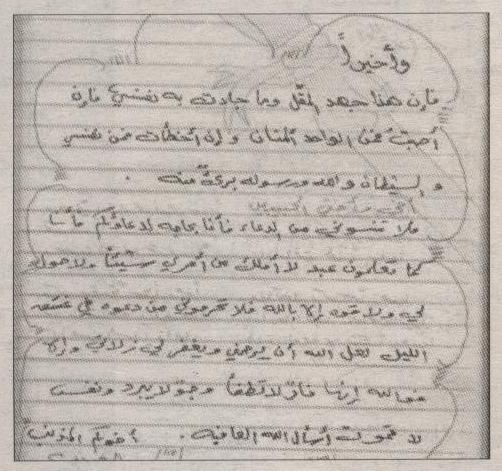 وأخيراً
فإن هذا جهد المقل وما جادت به نفسي فإن
أصبت فمن الواحد المنان وإن أخطأت فمن نفسي
والشيطان والله ورسوله برئ منه .
فلا تنسوني من الدعاء فأنا بحاجه لدعائكم فأنا
كما تعلمون عبد لا أملك من أمري شيئاً ولا حول
لي ولا قوة إلا بالله فلا تحرموني من دعوه في
الليل لعل الله أن يرحمني ويغفر لي زلاتي وإلا
فوالله إنها نار لا تطفأ لا يبرد ونفس
لا تموت أسأل الله العافيه . أخوكم المذنب